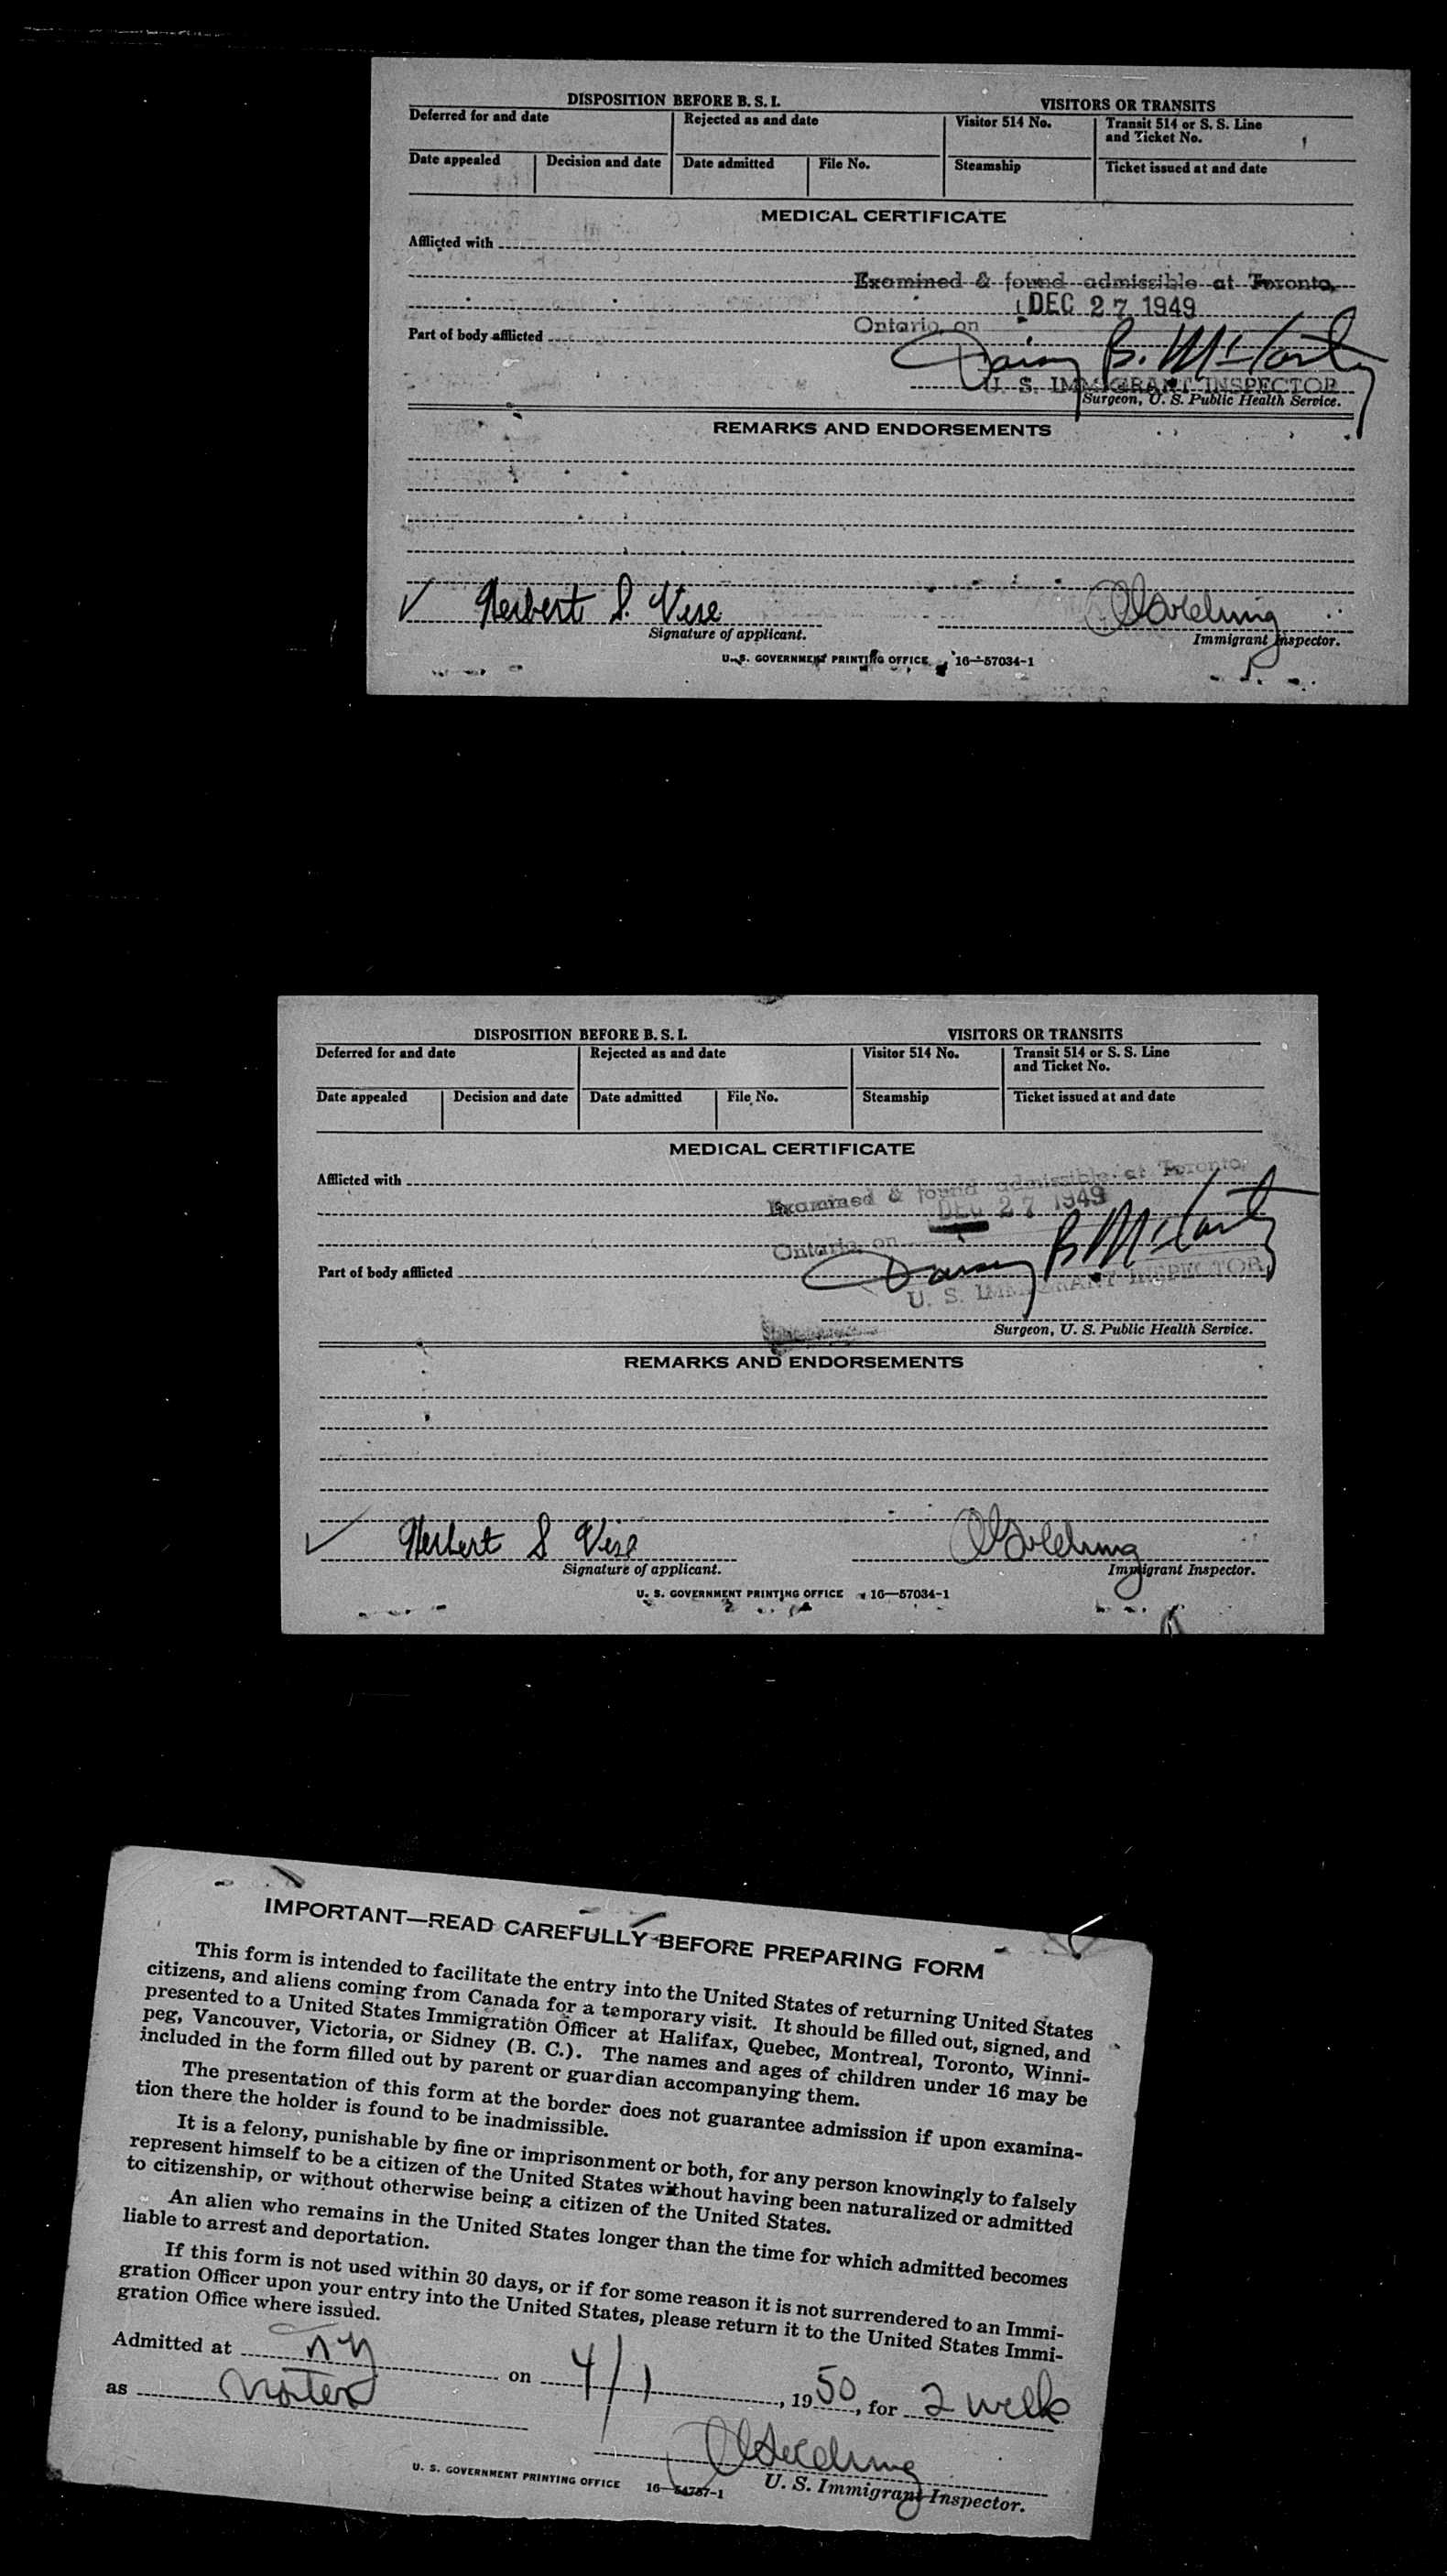 DISPOSITION BEFORE B. S. I. VISITORS OR TRANSITS
Deferred for and date Rejected as and date Visitor 514 No. Transit 514 or S. S. Line
and Ticket No.
Date appealed Decision and date Date admitted File No. Steamship Ticket issued at and date
MEDICAL CERTIFICATE
Afflicted with
Examined & found admissible at Toronto,
DEC 27 1949
Ontario, on
Part of body afflicted
B.
U. S. IMMIGRANT INSPECTOR
Surgeon, U. S. Public Health Service.
REMARKS AND ENDORSEMENTS
Herbert S. Vise
Signature of applicant. Immigrant Inspector.
U. S. GOVERNMENT PRINTING OFFICE 16—57034-1
DISPOSITION BEFORE B. S. I. VISITORS OR TRANSITS
Deferred for and date Rejected as and date Visitor 514 No. Transit 514 or S. S. Line
and Ticket No.
Date appealed Decision and date Date admitted File No. Steamship Ticket issued at and date
MEDICAL CERTIFICATE
Afflicted with
Examined & found admissible at Toronto,
DEC 27 1949
Ontario, on
Part of body afflicted
B.
U. S. IMMIGRANT INSPECTOR
Surgeon, U. S. Public Health Service.
REMARKS AND ENDORSEMENTS
Herbert S Vise
Signature of applicant. Immigrant Inspector.
U. S. GOVERNMENT PRINTING OFFICE 16—57034-1
IMPORTANT—READ CAREFULLY BEFORE PREPARING FORM
This form is intended to facilitate the entry into the United States of returning United States
citizens, and aliens coming from Canada for a temporary visit. It should be filled out, signed, and
presented to a United States Immigration Officer at Halifax, Quebec, Montreal, Toronto, Winni-
peg, Vancouver, Victoria, or Sidney (B. C.). The names and ages of children under 16 may be
included in the form filled out by parent or guardian accompanying them.
The presentation of this form at the border does not guarantee admission if upon examina-
tion there the holder is found to be inadmissible.
It is a felony, punishable by fine or imprisonment or both, for any person knowingly to falsely
represent himself to be a citizen of the United States without having been naturalized or admitted
to citizenship, or without otherwise being a citizen of the United States.
An alien who remains in the United States longer than the time for which admitted becomes
liable to arrest and deportation.
If this form is not used within 30 days, or if for some reason it is not surrendered to an Immi-
gration Officer upon your entry into the United States, please return it to the United States Immi-
gration Office where issued.
Admitted at NY on 4/1, 1950, for 2 weeks
as
U. S. GOVERNMENT PRINTING OFFICE 16—54787-1 U. S. Immigrant Inspector.